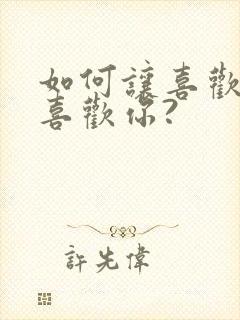 如何讓喜歡
喜歡你?
許先偉